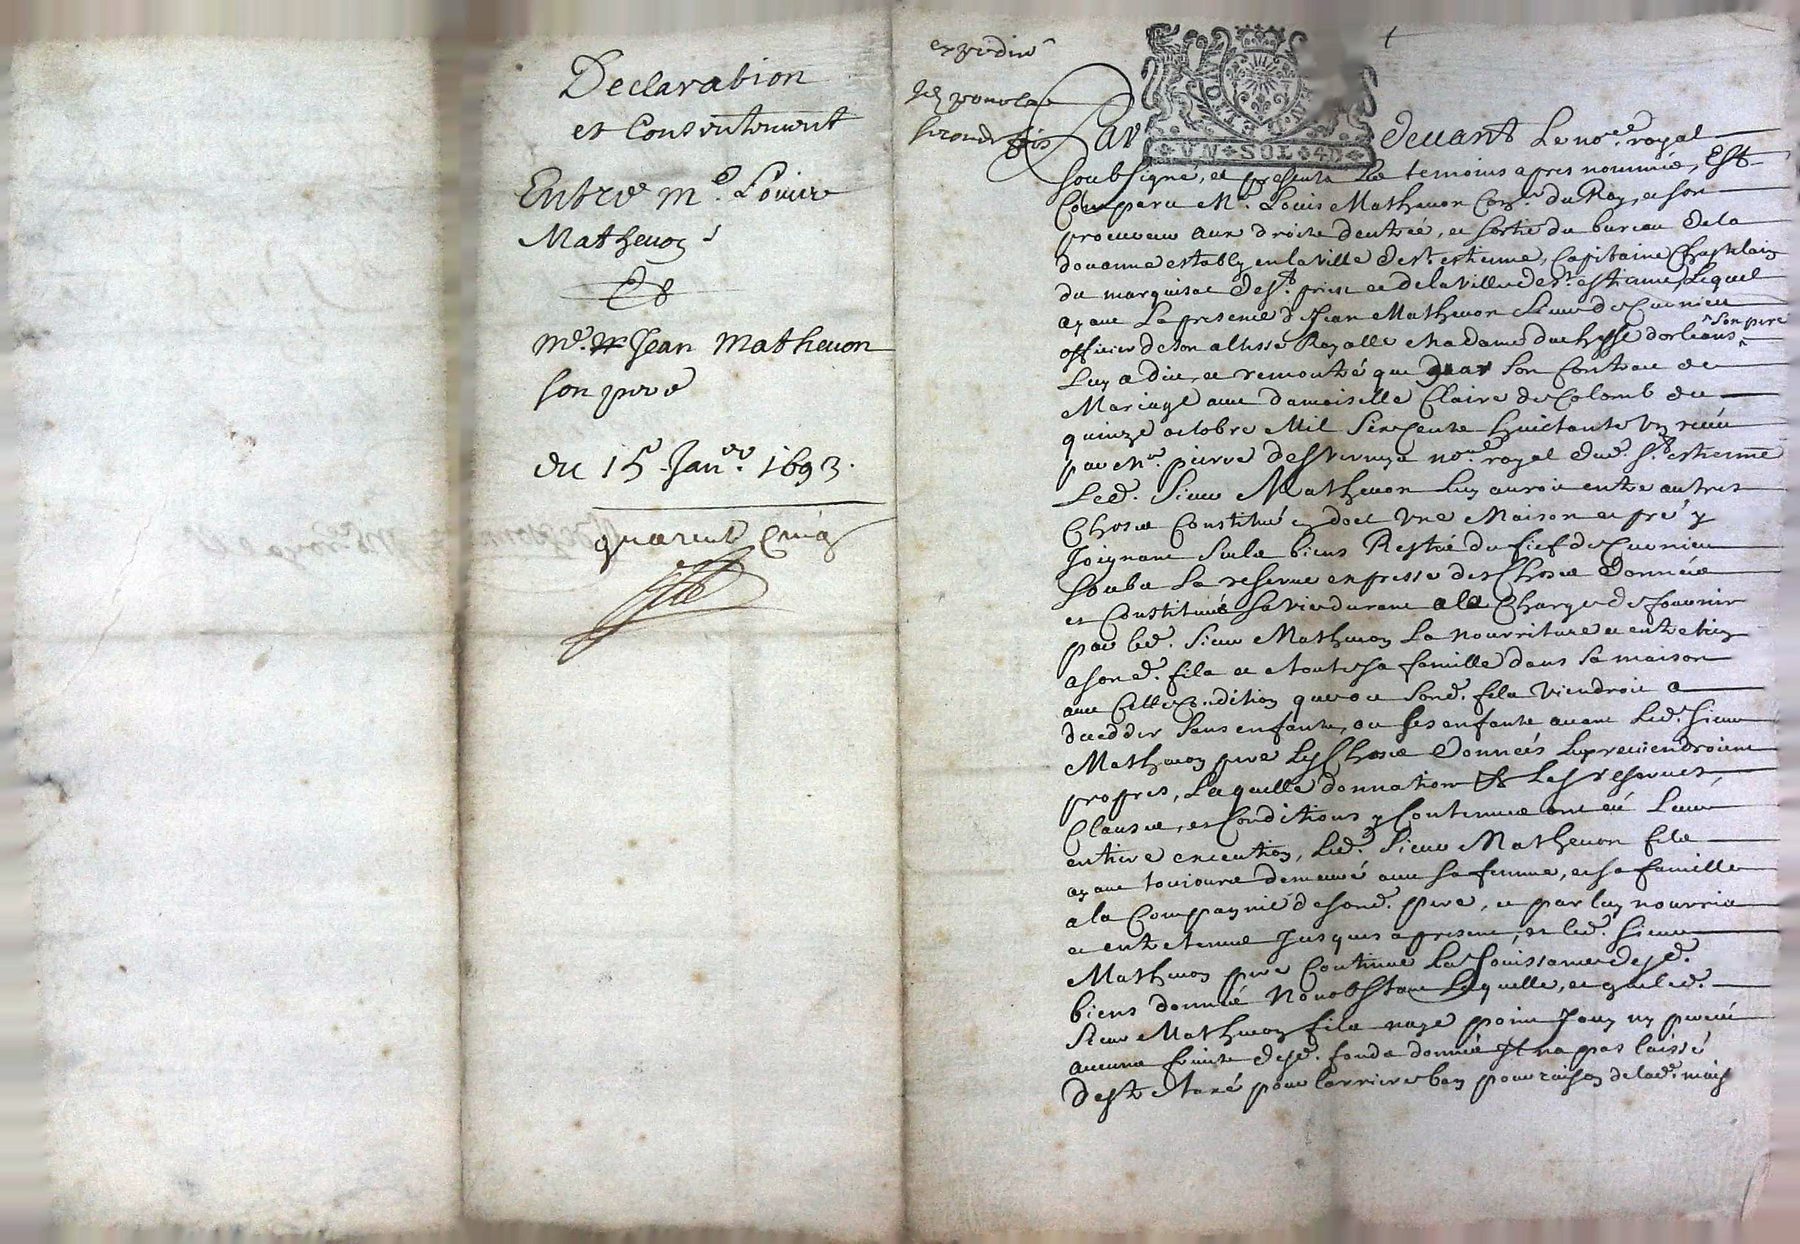 Declaration
et Consentement
Entre Mᵉ. Louis
Matheuon
Et
Mᵉ. Jean Matheuon
son pere
du 15 Janᵉʳ. 1693.
quarente Cinq
expedié
pour la
seconde fois
UN SOL 4D
Par deuant Le noʳᵉ royal
soubsigné, et presents les temoins apres nommés, Est
Comparu Mᵉ. Louis Matheuon Conˢʳ du Roy, et son
procureur aux droits d'entrée, et sortie du bureau de la
douanne establÿ en la ville de sᵗ. estienne, Capitaine Chastelain
du marquisat de sᵗ. priest et de la ville de sᵗ. estienne, Lequel
ayant La presence de Jean Matheuon sieur de Curnieu
officier de son altesse Royalle Madame duchesse dorleans son pere
Luy a dit, et remontré que par son Contract de
Mariage auec damoiselle Claire de Colomb du
quinze octobre Mil Six Cents huictante un receu
par Mʳᵉ. pierre desverneys noʳᵉ royal dudᵗ. Sᵗ. estienne
Ledᵗ. Sieur Matheuon Luy auroit entre autres
Choses Constitué en doct Une Maison et pré y
Joignant sauf les biens Restés du fief de Curnieu
soubs La reserue expresse des Choses données
et Constituées sa vie durant a la Charge de fournir
par led. Sieur Matheuon La nourriture et entretien
a son d. fils et a toute sa famille dans sa maison
auec Cette Condition que ou son d. fils viendroit a
decedder sans enfants, ou ses enfants auant Led. Sieur
Matheuon pere Les Choses données Luy reuiendroient
propres, Laquelle donnation et Les reserues,
Clauses, et Conditions y Contenues ont eü Leur
entiere execution, Led. Sieur Matheuon fils
ayant toujours demeuré auec sa femme, et sa famille
a la Compagnie de son d. pere, et par luy nourris
et entretenus Jusques a present, et led. Sieur
Matheuon pere Continué La Jouissance desd.
biens donnés Nonobstant Laquelle, et que led.
Sieur Matheuon fils naye point Jouy ny perceu
aucuns fruits desd. fonds donnés Il na pas laissé
destre taxé pour larriere ban pour raison de lad. mais